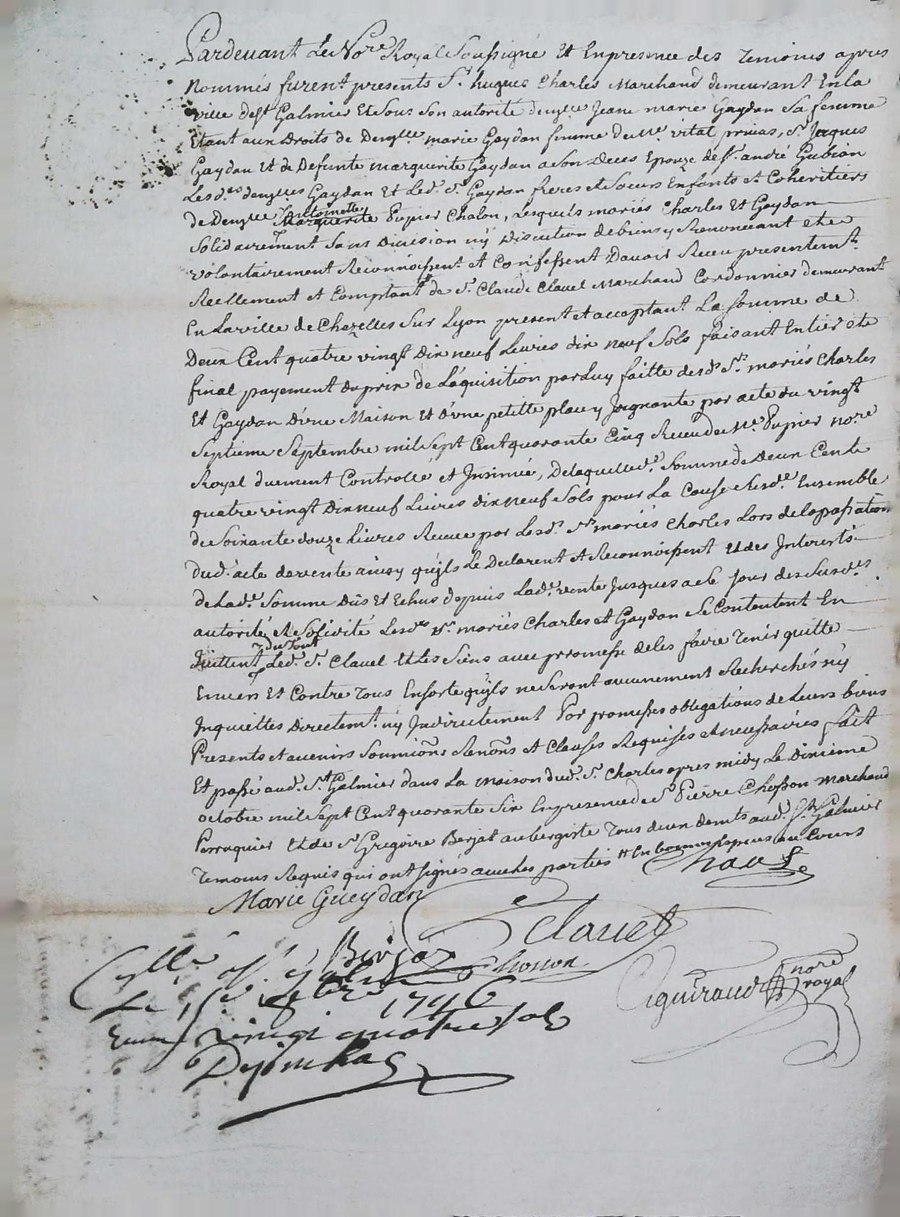 Pardevant Le No.re Royal Soussigné Et En presence des Temoins apres
Nommés furent presents S.r hugues Charles Marchand demeurant En la
ville de S.t Galmier Et Sous Son autorité dem.lle Jeane marie Gaydan Sa femme
Etant aux Droits de Dem.lle marie Gaydan femme de M.e vital S.r Jacques
Gaydan Et de Defunte marguerite Gaydan a Son deces Epouze de S.r andré Gubian
Lesd.es dem.lles Gaydan Et Led. S.r Gaydan freres et Soeurs Enfants et Coheritiers
de Dem.lle Marguerite Antoinette Pupier Chalon, Lesquels mariés Charles Et Gaydan
Solidairement Sans Division ny Discution de biens y Renonceant et de
volontairement Reconnoissent et Confessent Davoir Receu presentem.t
Reellement et Comptant de S.r Claude Clavel Marchand Cordonnier demeurant
En La ville de Chazelles Sur Lyon present et acceptant La Somme de
Deux Cent quatre vingt Dix neuf Livres dix neuf Sols faisant Entier et
final payement du prix de L'aquisition par Luy faitte desd. S.rs mariés Charles
Et Gaydan D'une Maison Et d'une petitte place y Joignante par acte du vingt
Septieme Septembre mil Sept Cent quarante Cinq Receu de M.e Pupier no.re
Royal duement Controllé et Insinué, De laquelle d. Somme de Deux Cent
quatre vingt Dix neuf Livres dix neuf Sols pour La Cause Susd.e Ensemble
de Soixante douze Livres Receue par Lesd. S.rs mariés Charles Lors de la passation
dud. acte de vente ainsy qu'ils Le Declarent et Reconnoissent Et des Interets
de Lad. Somme Dûs et Echus depuis Lad. vente Jusques a ce Jour des Susd.es
autorité et Solidité Lesd. S.rs mariés Charles et Gaydan Se Contentent En
quittent du tout Led. S.r Clavel Et Les Siens avec promesse de les faire Tenir quitte
Envers Et Contre Tous En sorte qu'ils ne Seront aucunement Recherchés ny
Inquiettés Directem.t ny Indirectement Par promesses obligations de Leurs biens
Presents et avenirs Soumions Renons et Clauses Requises et necessaires fait
Et passé aud. S.t Galmier dans La maison dud. S.r Charles apres midy Le Dixieme
octobre mil Sept Cent quarante Six En presence de S.r Pierre Chosson Marchand
Perruquier Et de S.r Gregoire Berjat aubergiste Tous deux dem.ts aud. S.t Galmier
Temoins Requis qui ont Signés avec Les parties
Charle
Marie Gueydan
Clavel
Berjat
Chosson
Ciguiraud no.re royal
1746
vingt quatre sols